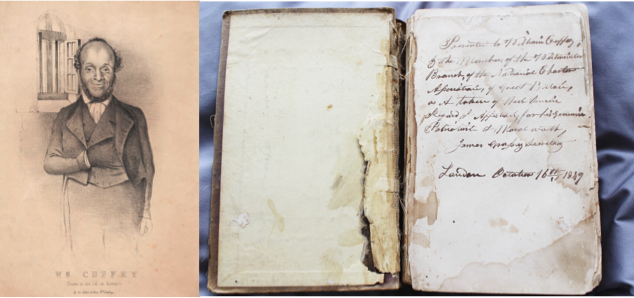 WM CUFFEY
Presented to William Cuffey,
by the Members of the Westminster
Branch, of the National Charter
Association, of Great Britain,
as A token of their sincere
regard & Affection for his Genuine
Patriotism & Moral worth,
James Grassby Secretary
London October 16th 1849